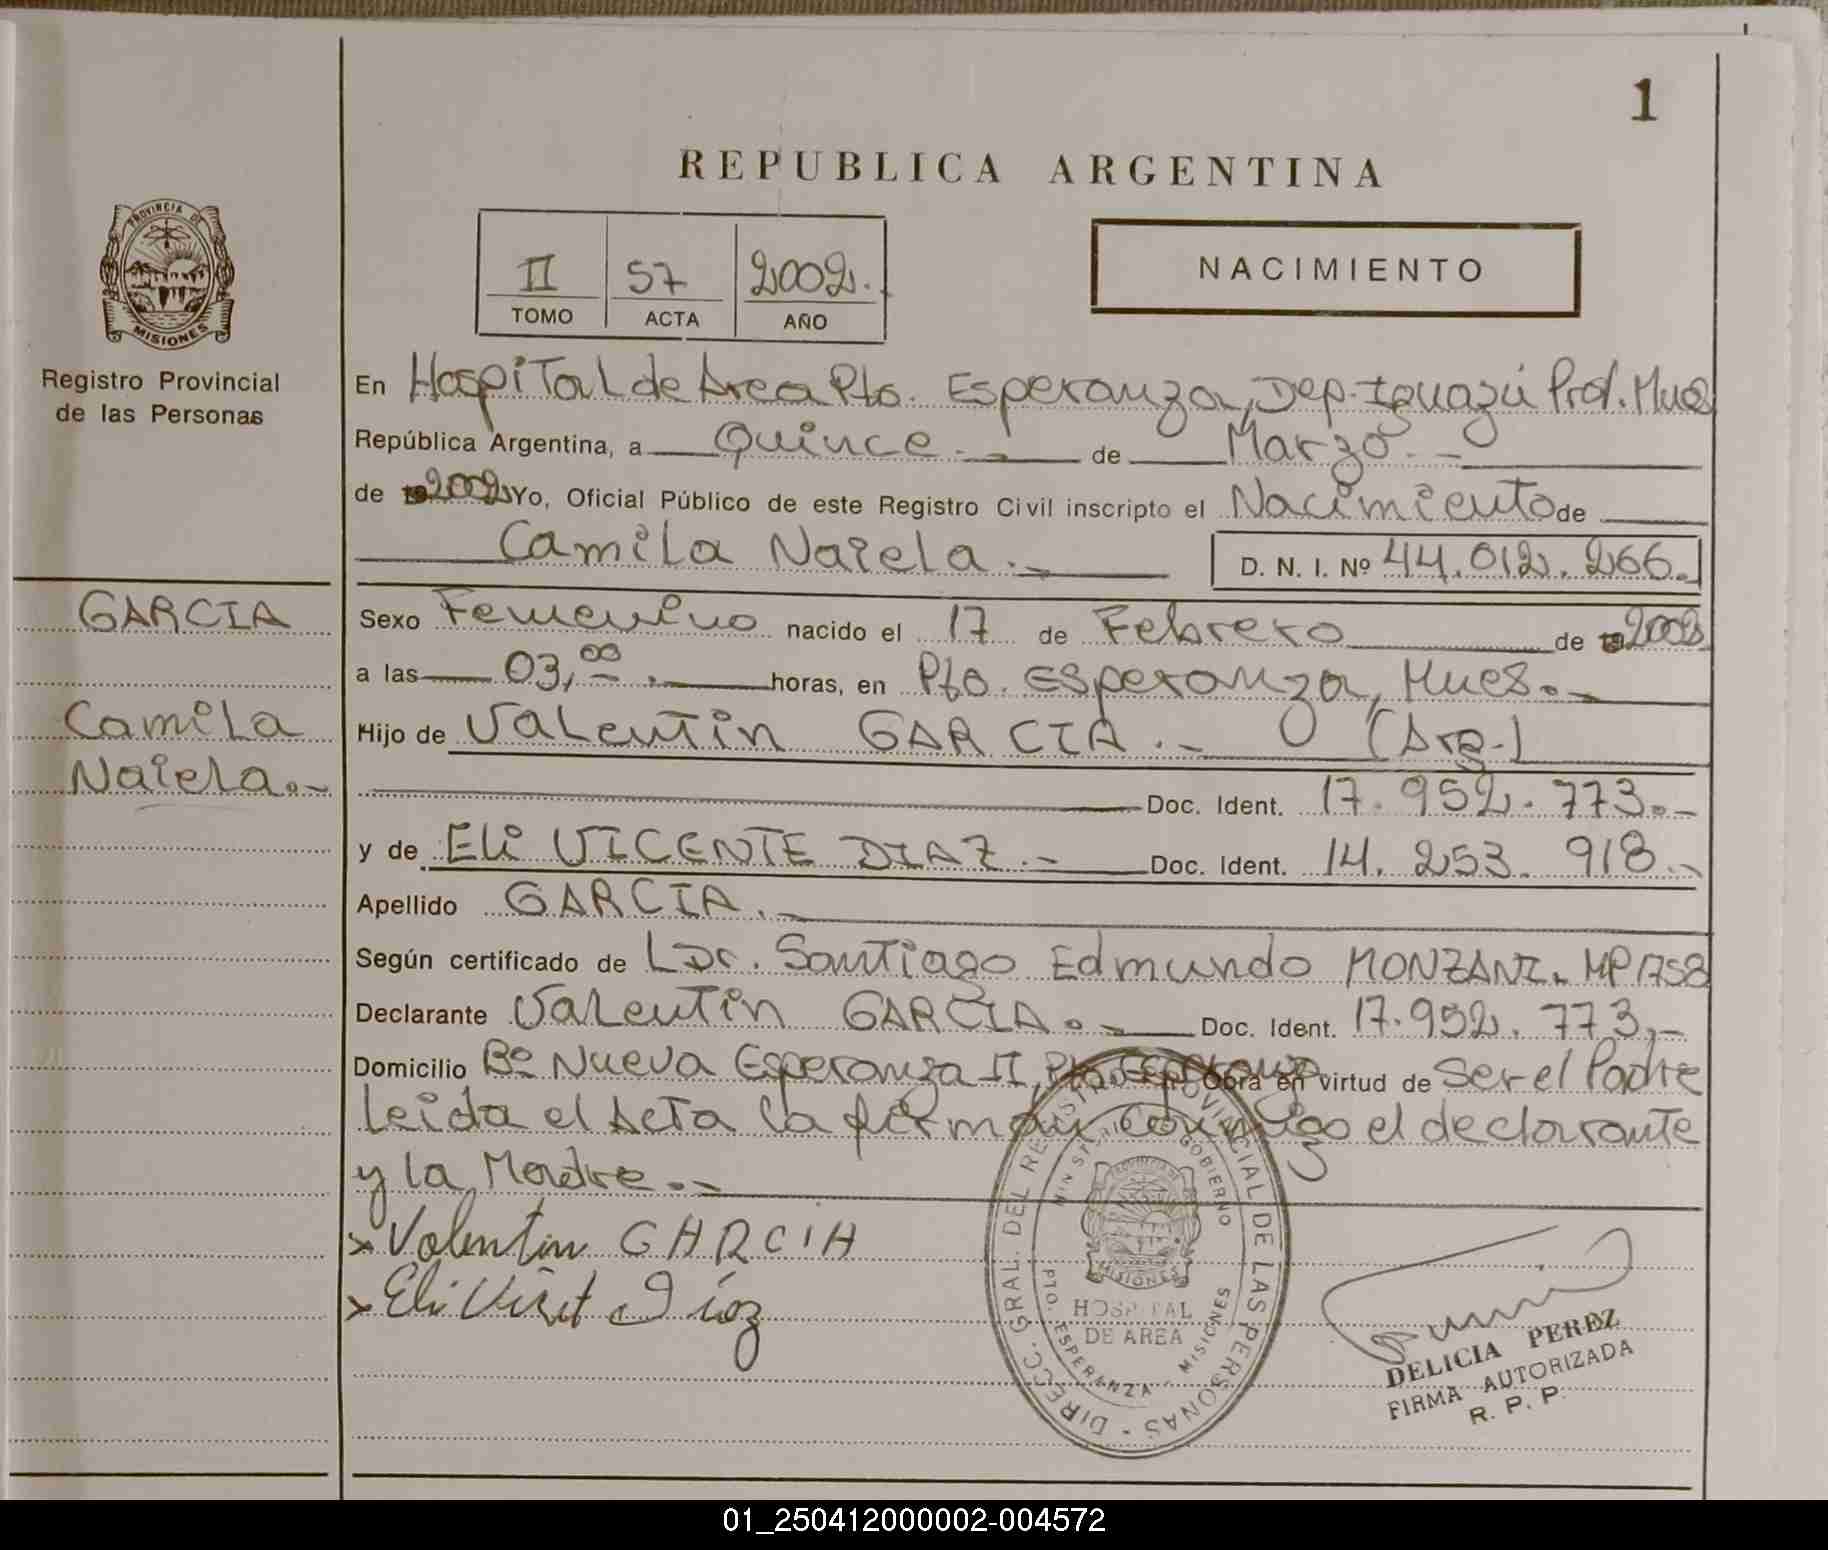 1
REPUBLICA ARGENTINA
II 57 2002.
TOMO ACTA AÑO
NACIMIENTO
PROVINCIA DE
MISIONES
Registro Provincial
de las Personas
En Hospital de Area Pto. Esperanza, Dep. Iguazú Prov. Mnes
República Argentina, a Quince.- de Marzo.-
de 2002 Yo, Oficial Público de este Registro Civil inscripto el Nacimiento de
Camila Naiela.- D. N. I. Nº 44.012.266.
GARCIA
Camila
Naiela.-
Sexo Femenino nacido el 17 de Febrero de 2002
a las 03,00 horas, en Pto. Esperanza, Mnes.-
Hijo de Valentin GARCIA.- (Arg.)
Doc. Ident. 17.952.773.-
y de Eli VICENTE DIAZ.- Doc. Ident. 14.253.918.-
Apellido GARCIA.-
Según certificado de Dr. Santiago Edmundo MONZANI. MP1758
Declarante Valentin GARCIA.- Doc. Ident. 17.952.773,-
Domicilio Bº Nueva Esperanza II, Pto. Esperanza Obra en virtud de Ser el Padre
Leida el Acta la firman conmigo el declarante
y la Madre.-
x Valentin GARCIA
x Eli Diaz
DIRECC. GRAL. DEL REGISTRO PROVINCIAL DE LAS PERSONAS
MINISTERIO DE GOBIERNO
MISIONES
HOSPITAL
DE AREA
PTO. ESPERANZA - MISIONES
DELICIA PEREZ
FIRMA AUTORIZADA
R. P. P.
01_250412000002-004572